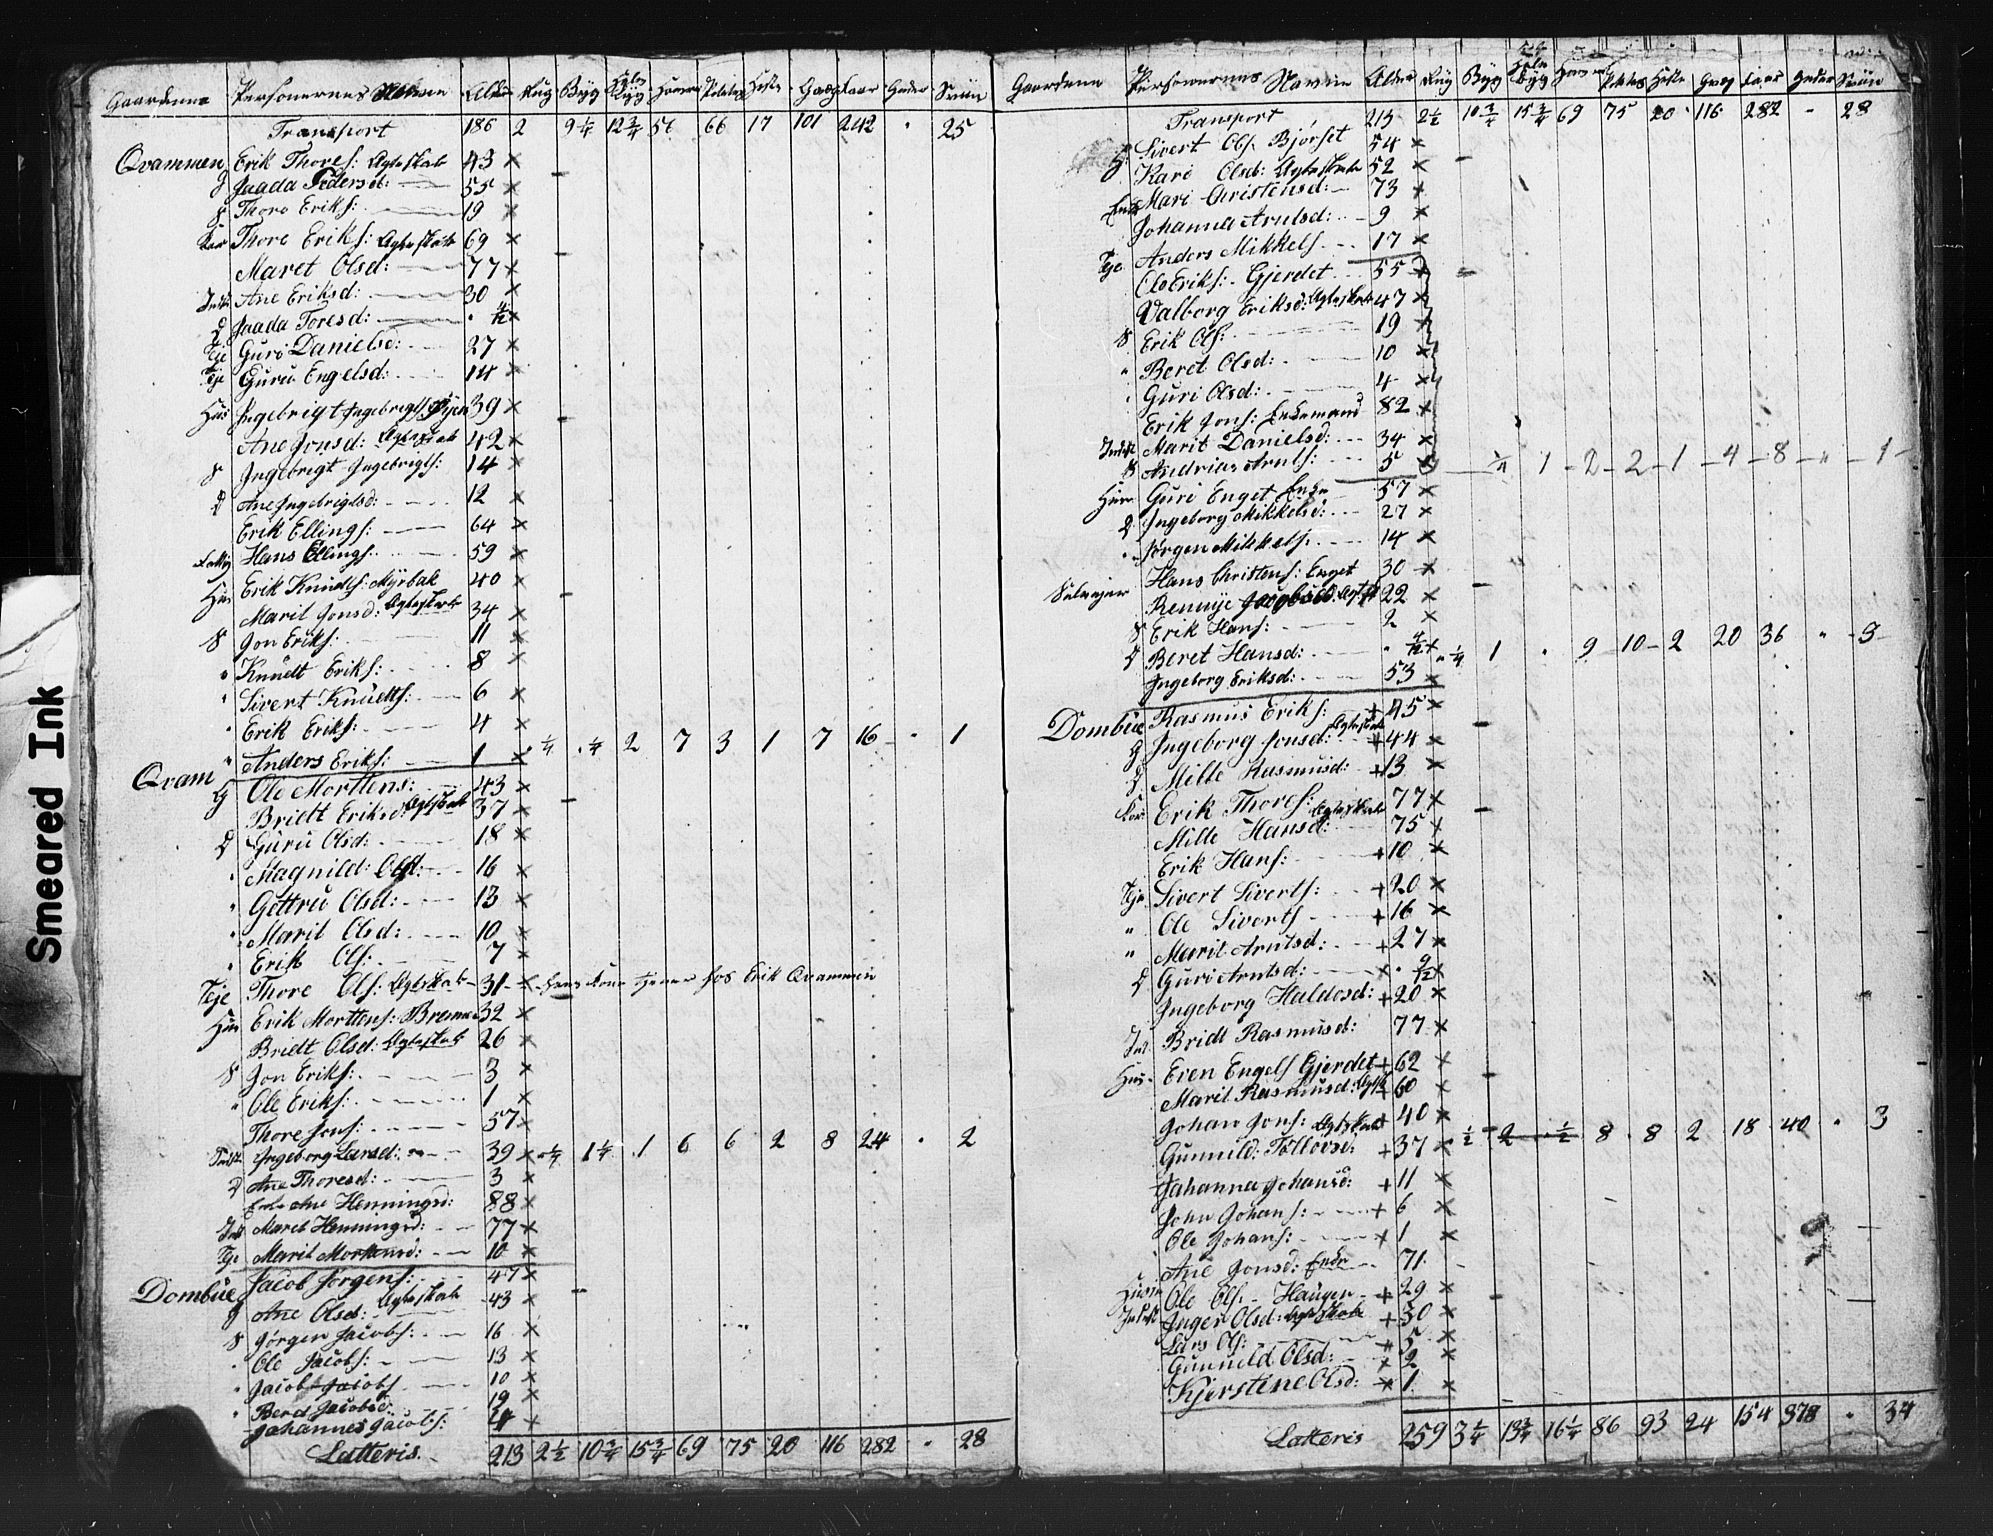 Smeared Ink
Gaardenne Personernes Navne Alder Rug Byg Havre Potetes Heste Qvæg Faar Geder Sviin
Transport 186 2 9 1/4 12 3/4 56 66 17 101 242 " 25
Qvammen Erik Thores: Ægteskab 43 ×
G Jaada Pedersd: 55 ×
S Thore Eriks: 19 ×
Kaar Thore Eriks: Ægteskab 69 ×
Maret Olsd: 77 ×
Indst Ane Eriksd: 30 ×
D Jaada Toresd: " 4/12 ×
Tje Guro Danielsd: 27 ×
Tje Guru Engelsd: 14 ×
Hus Ingebrigt Ingebrigts Øyen 39 ×
Ane Jonsd: Ægteskab 42 ×
S Ingebrigt Ingebrigts: 14 ×
D Ane Ingebrigtsd: 12 ×
Erik Ellings: 64 ×
Hans Ellings: 59 ×
Hus Erik Knudts: Myrbak 40 ×
Marit Jonsd: Ægteskab 34 ×
S Jon Eriks: 11 ×
" Knudt Eriks: 8 ×
" Sivert Knudts: 6 ×
" Erik Eriks: 4 ×
" Anders Eriks: 1 × 1/4 1/4 2 7 3 1 7 16 " 1
Qvam Ole Morttens: 43 ×
G Bridt Eriksd: Ægteskab 37 ×
D Guru Olsd: 18 ×
" Magnild: Olsd: 16 ×
" Gottru Olsd: 13 ×
" Marit Olsd: 10 ×
" Erik Ols: 7 ×
Tje Thore Ols: Ægteskab 31 × hans kone tjener hos Erik Qvammen
Hus Erik Morttens: 32 ×
Bridt Olsd: Ægteskab 26 ×
S Jon Eriks: 3 ×
" Ole Eriks: 1 ×
Thore Jons: 57 ×
Indst Ingeborg Larsd: 39 × 1/4 1 1/4 1 6 6 2 8 24 " 2
D Ane Thoresd: 3 ×
Enke Ane Henningsd: 88 ×
Ind Maret Henningsd: 77 ×
Tje Marit Mortensd: 10 ×
Dombue Jacob Jørgens: 47 ×
G Ane Olsd: Ægteskab 43 ×
S Jørgen Jacobs: 16 ×
" Ole Jacobs: 13 ×
" Jacob Jacobs 10 ×
" Jacobsd 19 ×
Johannes Jacobs: 4 ×
Latteris 213 2 1/2 10 3/4 15 3/4 69 75 20 116 282 " 28
Gaardene Personernes Navne Alder Rug Byg Byg Havre Potetes Heste Qvæg Faar Geder Sviin
Transport 213 2 1/2 10 3/4 15 3/4 69 75 20 116 282 " 28
G Sivert Ols: Bjørset 54 ×
Kari Olsd: Ægteskab 52 ×
Enke Mari Christensd: 73 ×
Johanna Arntsd: 9 ×
Tje Anders Mikkels 17 ×
Ole Eriks: Gjerdet 55 ×
Valborg Eriksd: Ægteskab 47 ×
S Erik Ols: 19 ×
" Beret Olsd: 10 ×
" Guri Olsd: 4 ×
Erik Jons: Enkemand 82 ×
Indst Marit Danielsd: 34 ×
S Andrias Arnts: 5 1/4 1 2 2 1 4 8 " 1
Huus Guri Enget Enke 57 ×
D Ingeborg Mikkelsd: 27 ×
" Jørgen Mikkels: 14 ×
Hans Christens: Enget 30 ×
Selvejer Rennije 22 ×
S Erik Hans: 2 ×
D Beret Hansd: " 4/12 × 1/4 1 " 9 10 2 20 36 " 3
Ingeborg Eriksd: 53 ×
Dombue Rasmus Eriks: + 45 ×
G Ingeborg Jonsd: Ægteskab + 44 ×
D Mille Rasmusd: + 13 ×
Kaar Erik Thores: 77 ×
Mille Hansd: Ægteskab 75 ×
Erik Hans: + 10 ×
Tje Sivert Siverts: + 20 ×
" Ole Siverts + 16 ×
" Marit Arntsd: + 27 ×
D Guri Arntsd: × " 9/12 ×
Ingeborg Haldosd: + 20 ×
Ind. Bridt Rasmusd: 77 ×
Hus Even Engels Gjerdet + 62 ×
Marit Rasmusd: + 60 ×
Johan Jons: Ægteskab + 40 ×
Gunnild: + 37 × 1/2 2 1/2 8 8 2 18 40 " 3
Johanna Johansd: + 11 ×
John Johans: + 6 ×
Ole Johans: + 1 ×
Ane Jonsd: Enke 71
Huus Ole Ols: Haugen + 29 ×
Indst Inger Olsd: Ægteskab + 30 ×
Lars Ols: + 5 ×
Gunnild Olsd: + 2 ×
Kjerstine Olsd: + 1 ×
Latteris 259 3 1/4 13 3/4 16 1/4 86 93 24 154 378 " 34